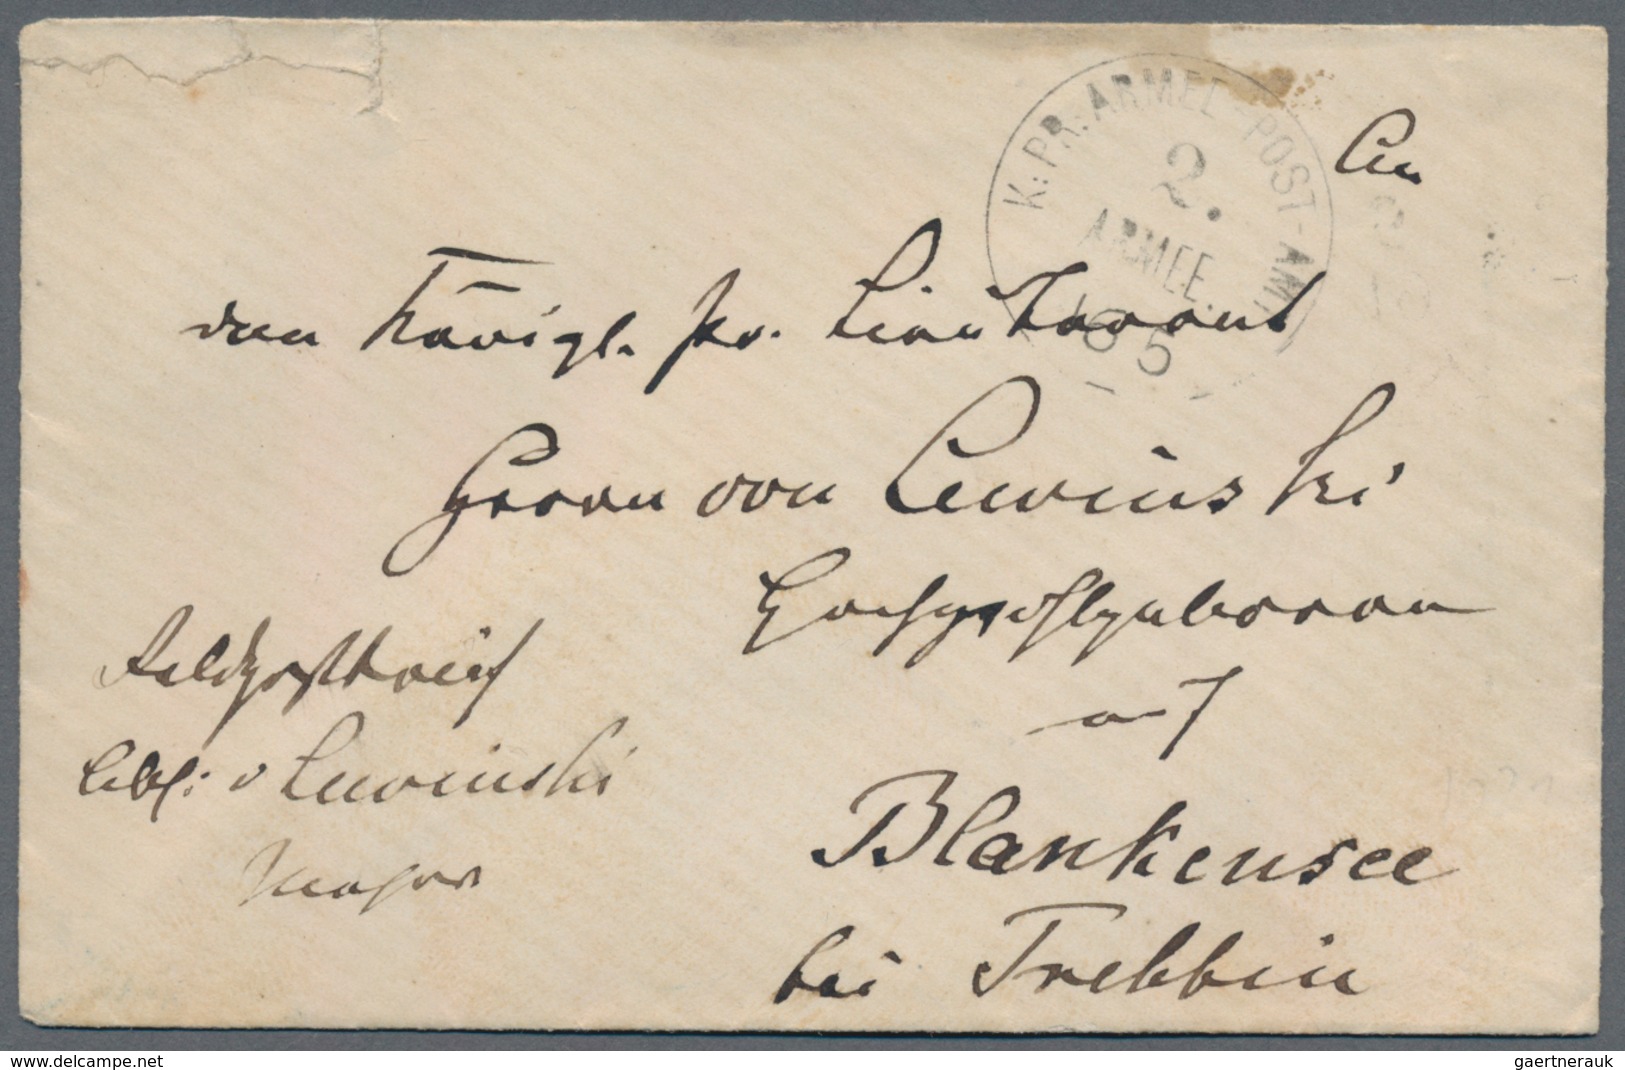 K: PR: ARMEE-POST-AMT
2.
ARMEE.
8 5
An
den Königl. Pr. Lieutenant
Herrn von Lewinski
Hochwohlgeboren
auf
Blankensee
bei Trebbin
Feldpostbrief
v Lewinski
Major
www.delcampe.net
gaertnerauk